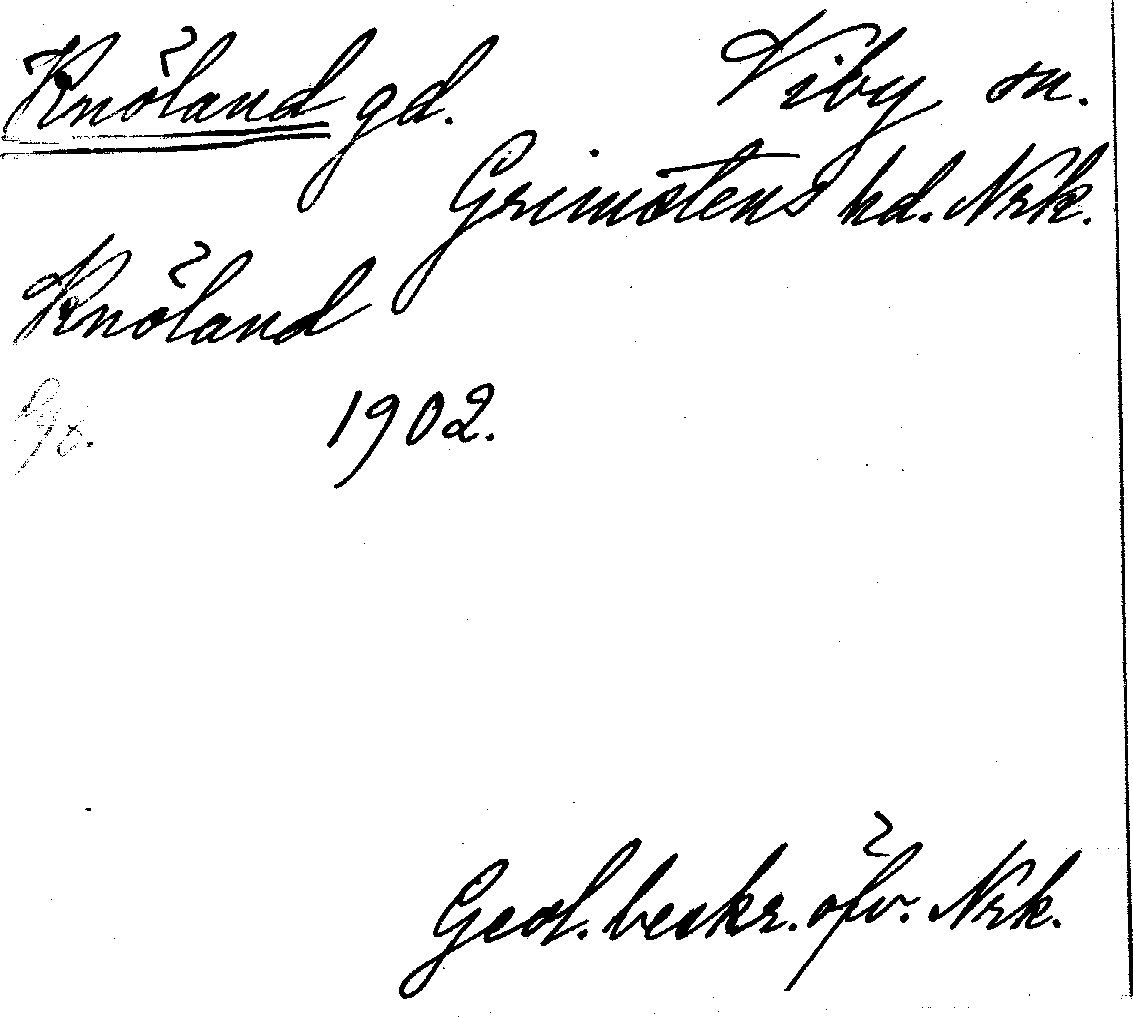 Knöland gd. Viby sn.
Grimstens hd. Nrk.
Knöland
1902.
Geol. beskr. öfv. Nrk.